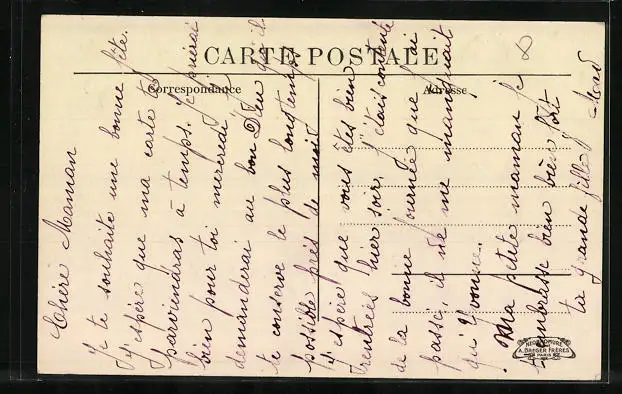 CARTE POSTALE
Correspondance
Adresse
Chère Maman
Je te souhaite une bonne fête.
J'espère que ma carte te
parviendras à temps. Je prierai
bien pour toi mercredi Je
demanderai au bon Dieu qu'il
te conserve le plus longtemps
possible près de moi
J'espère que vous êtes bien
rentrées hier soir. J'étais contente
de la bonne journée que j'ai
passé, il ne me manquait
qu'Yvonne.
Ma petite maman je
t'embrasse bien bien fort
ta grande fille
A. BREGER FRÈRES
PARIS